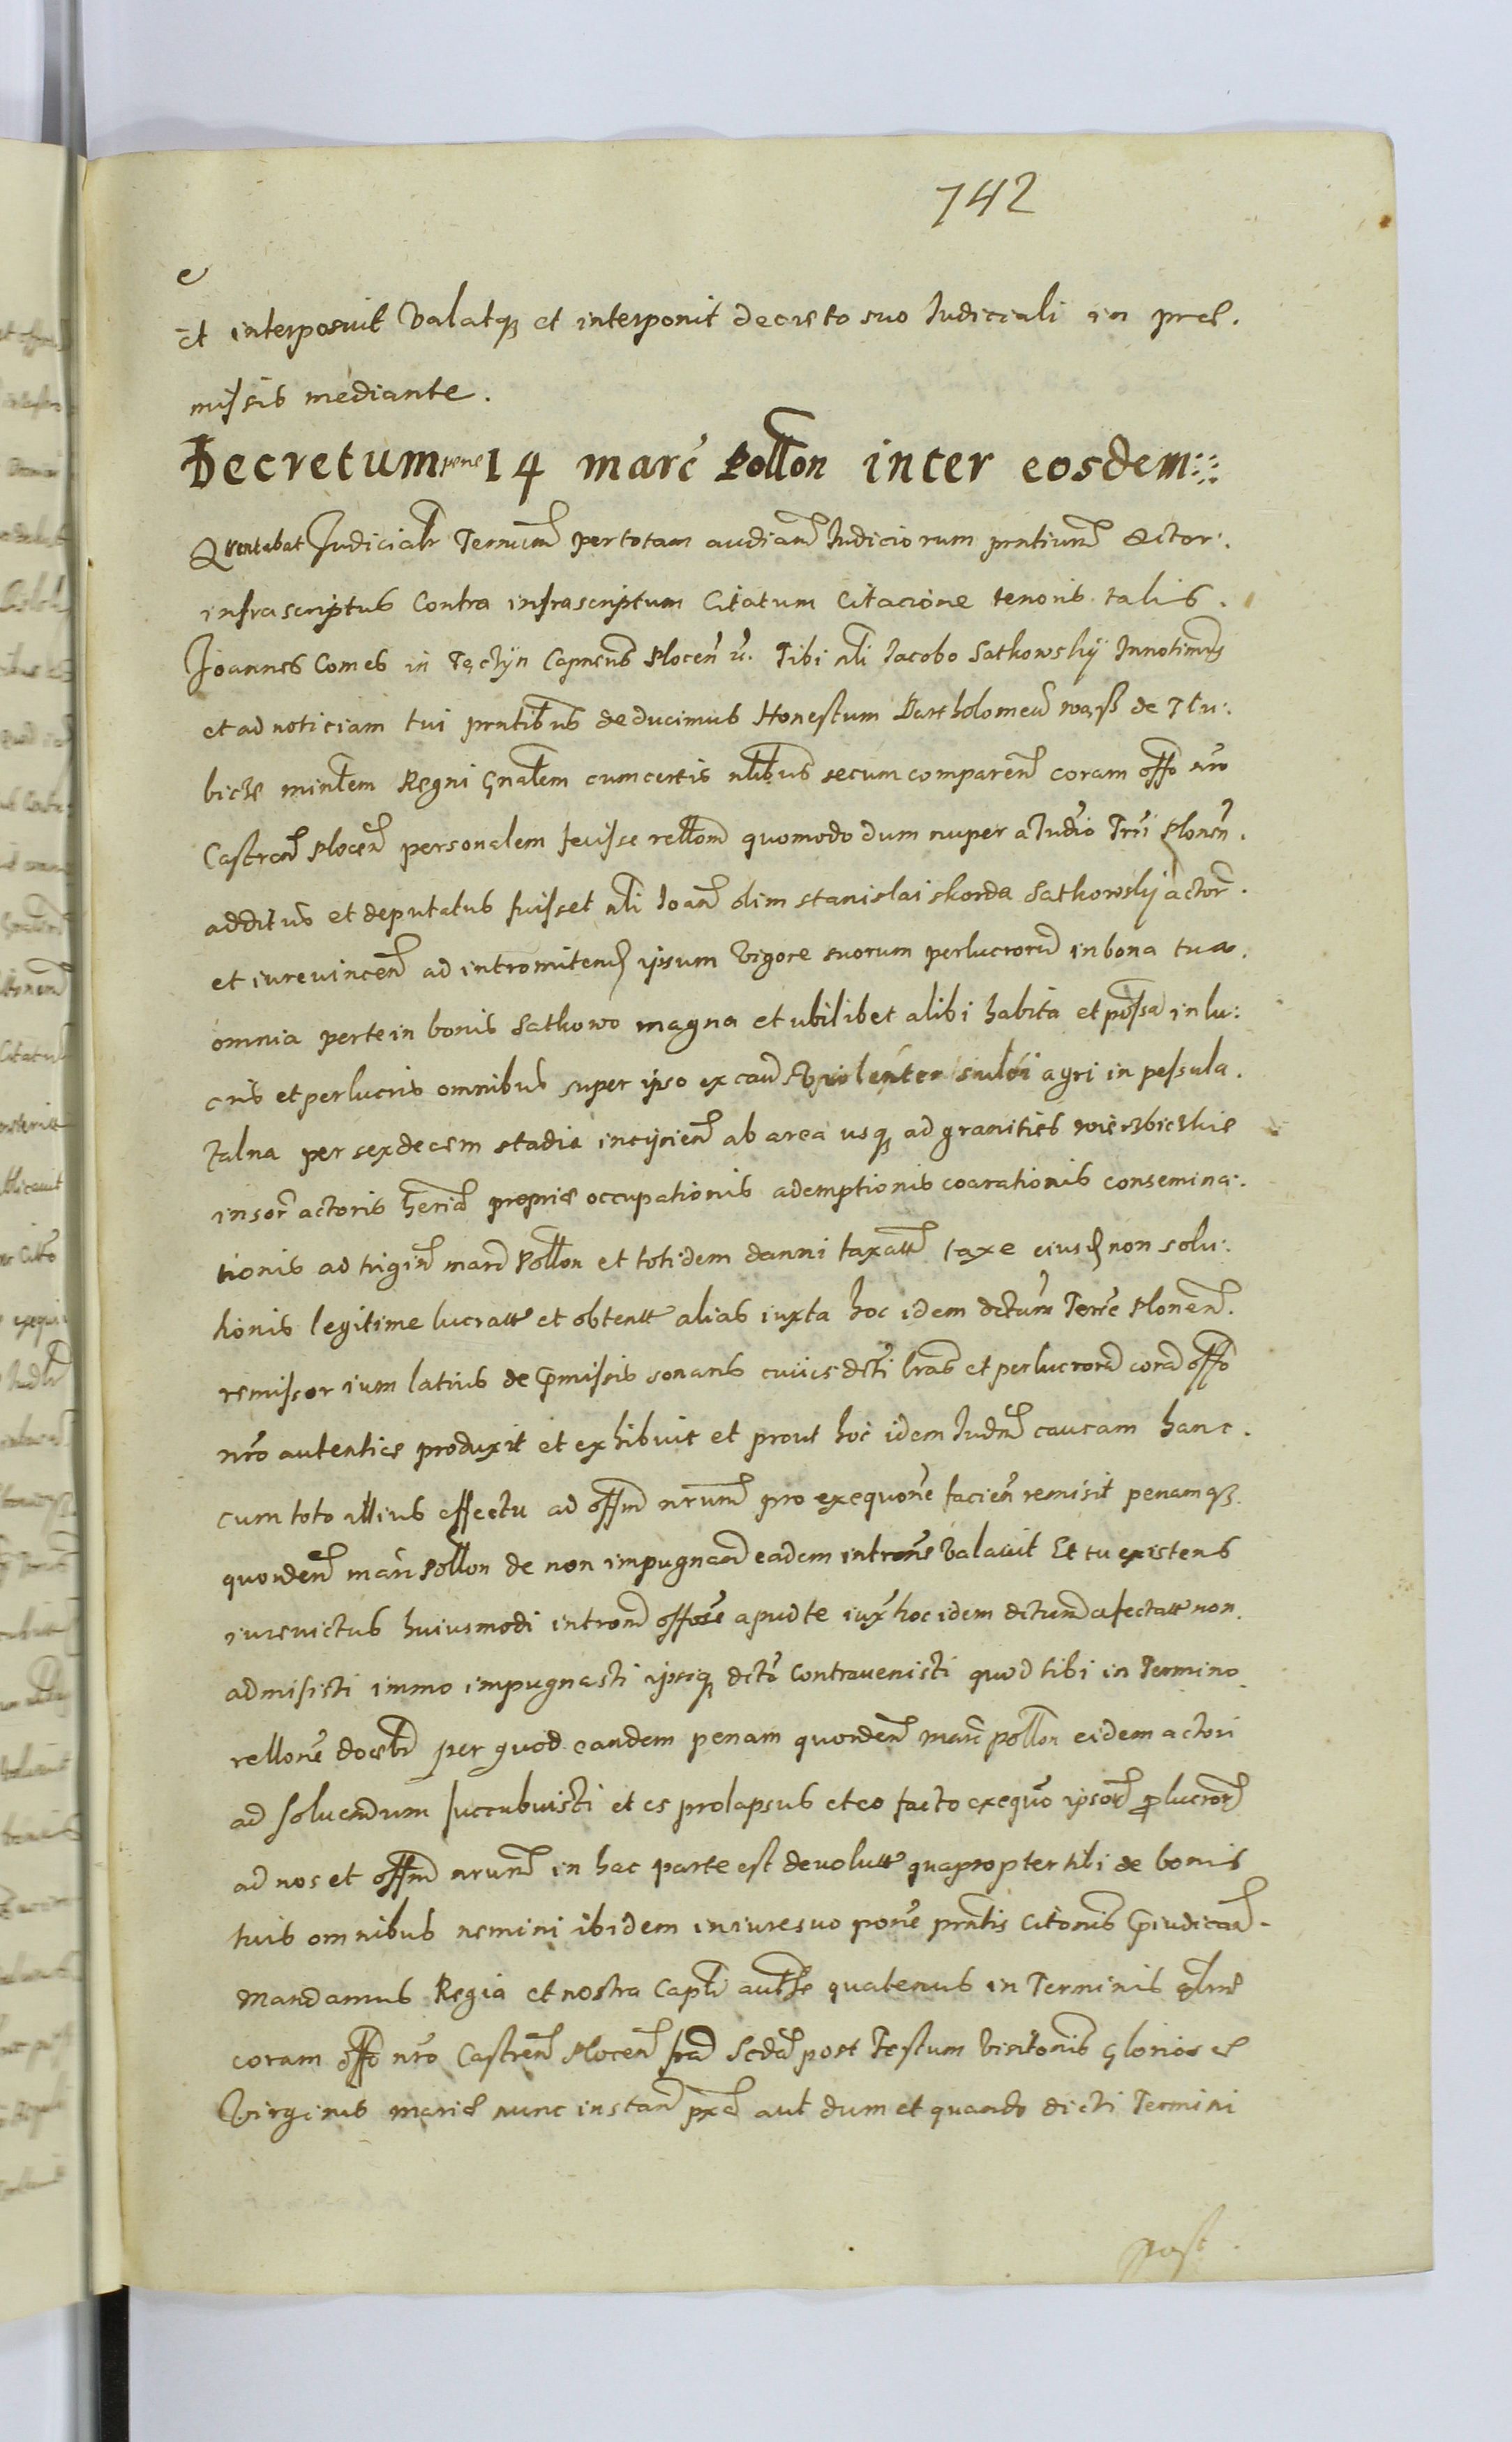 742
e
Et interposuit Valatqz et interponit decreto suo Iudiciali in pre.
missis mediante.
Decretum pene 14 marc Pollon inter eosdem
Attentabat Iudicialr Terminu per totam audiam Iudiciorum pntium Actor.
infrascriptus Contra infrascriptum Citatum Citacione tenoris talis.
Joannes Comes in Tęczyn Capneus Plocen Tibi nli Iacobo Satkowskij Innotims
et ad noticiam tui pntibus deducimus Honestum Bartholomeu de
bicze minlem Regni gnalem cum certis nlibus secum comparen coram offo nro
Castren Plocen personalem fecisse rellom quomodo dum nuper a Iudio Trri Plonen.
additus et deputatus fuisset nli Ioan olim Stanislai skorda Satkowskij actor.
et iurevincen ad intromitend ipsum Vigore suorum perlucroru in bona tua.
omnia perte in bonis Satkowo magna et ubilibet alibi habita et possa in lu:
cris et perlucris omnibus super ipso ex cau violenter sulci agri in pessula.
talna per sexdecem stadia incipien ab area usqz ad granities wierzbiczkie
in sor actoris heria proprie occupationis ademptionis coarationis consemina:
tionis ad trigin marc Pollon et totidem danni taxatt taxe eiusd non solu:
tionis legitime lucratt et obtentt alias iuxta hoc idem dctum Terre Plonen.
remissorium latius de pmissis sonans cuius dcti lras et perlucroru cora offo
nro autentice produxit et exhibuit et prout hoc idem Iudm causam hanc.
cum toto illius effectu ad offm nrum pro exequone facien remisit penamqz
quorden marc Pollon de non impugnand eadem introne Valavit Et tu existens
iurevictus huiusmodi introm offose apud te iux hoc idem dctum afectatt non.
admisisti immo impugnasti ipsiqz dcto Contravenisti quod tibi in Termino
rellone docebr per quod eandem penam quorden marc pollon eidem actori
ad solvendum succubuisti et es prolapsus et eo facto exequo ipsor plucror
ad nos et offm nrum in hac parte est devolutt quapropter tibi de bonis
tuis omnibus nemini ibidem in iure suo pone pntis Citonis piudican.
Mandamus Regia et nostra Capli autte quatenus in Terminis qlme
coram offo nro Castren Plocen fra Scda post Festum Visitonis gloriose
Virginis marie nunc instan pxe aut dum et quando dicti Termini
post